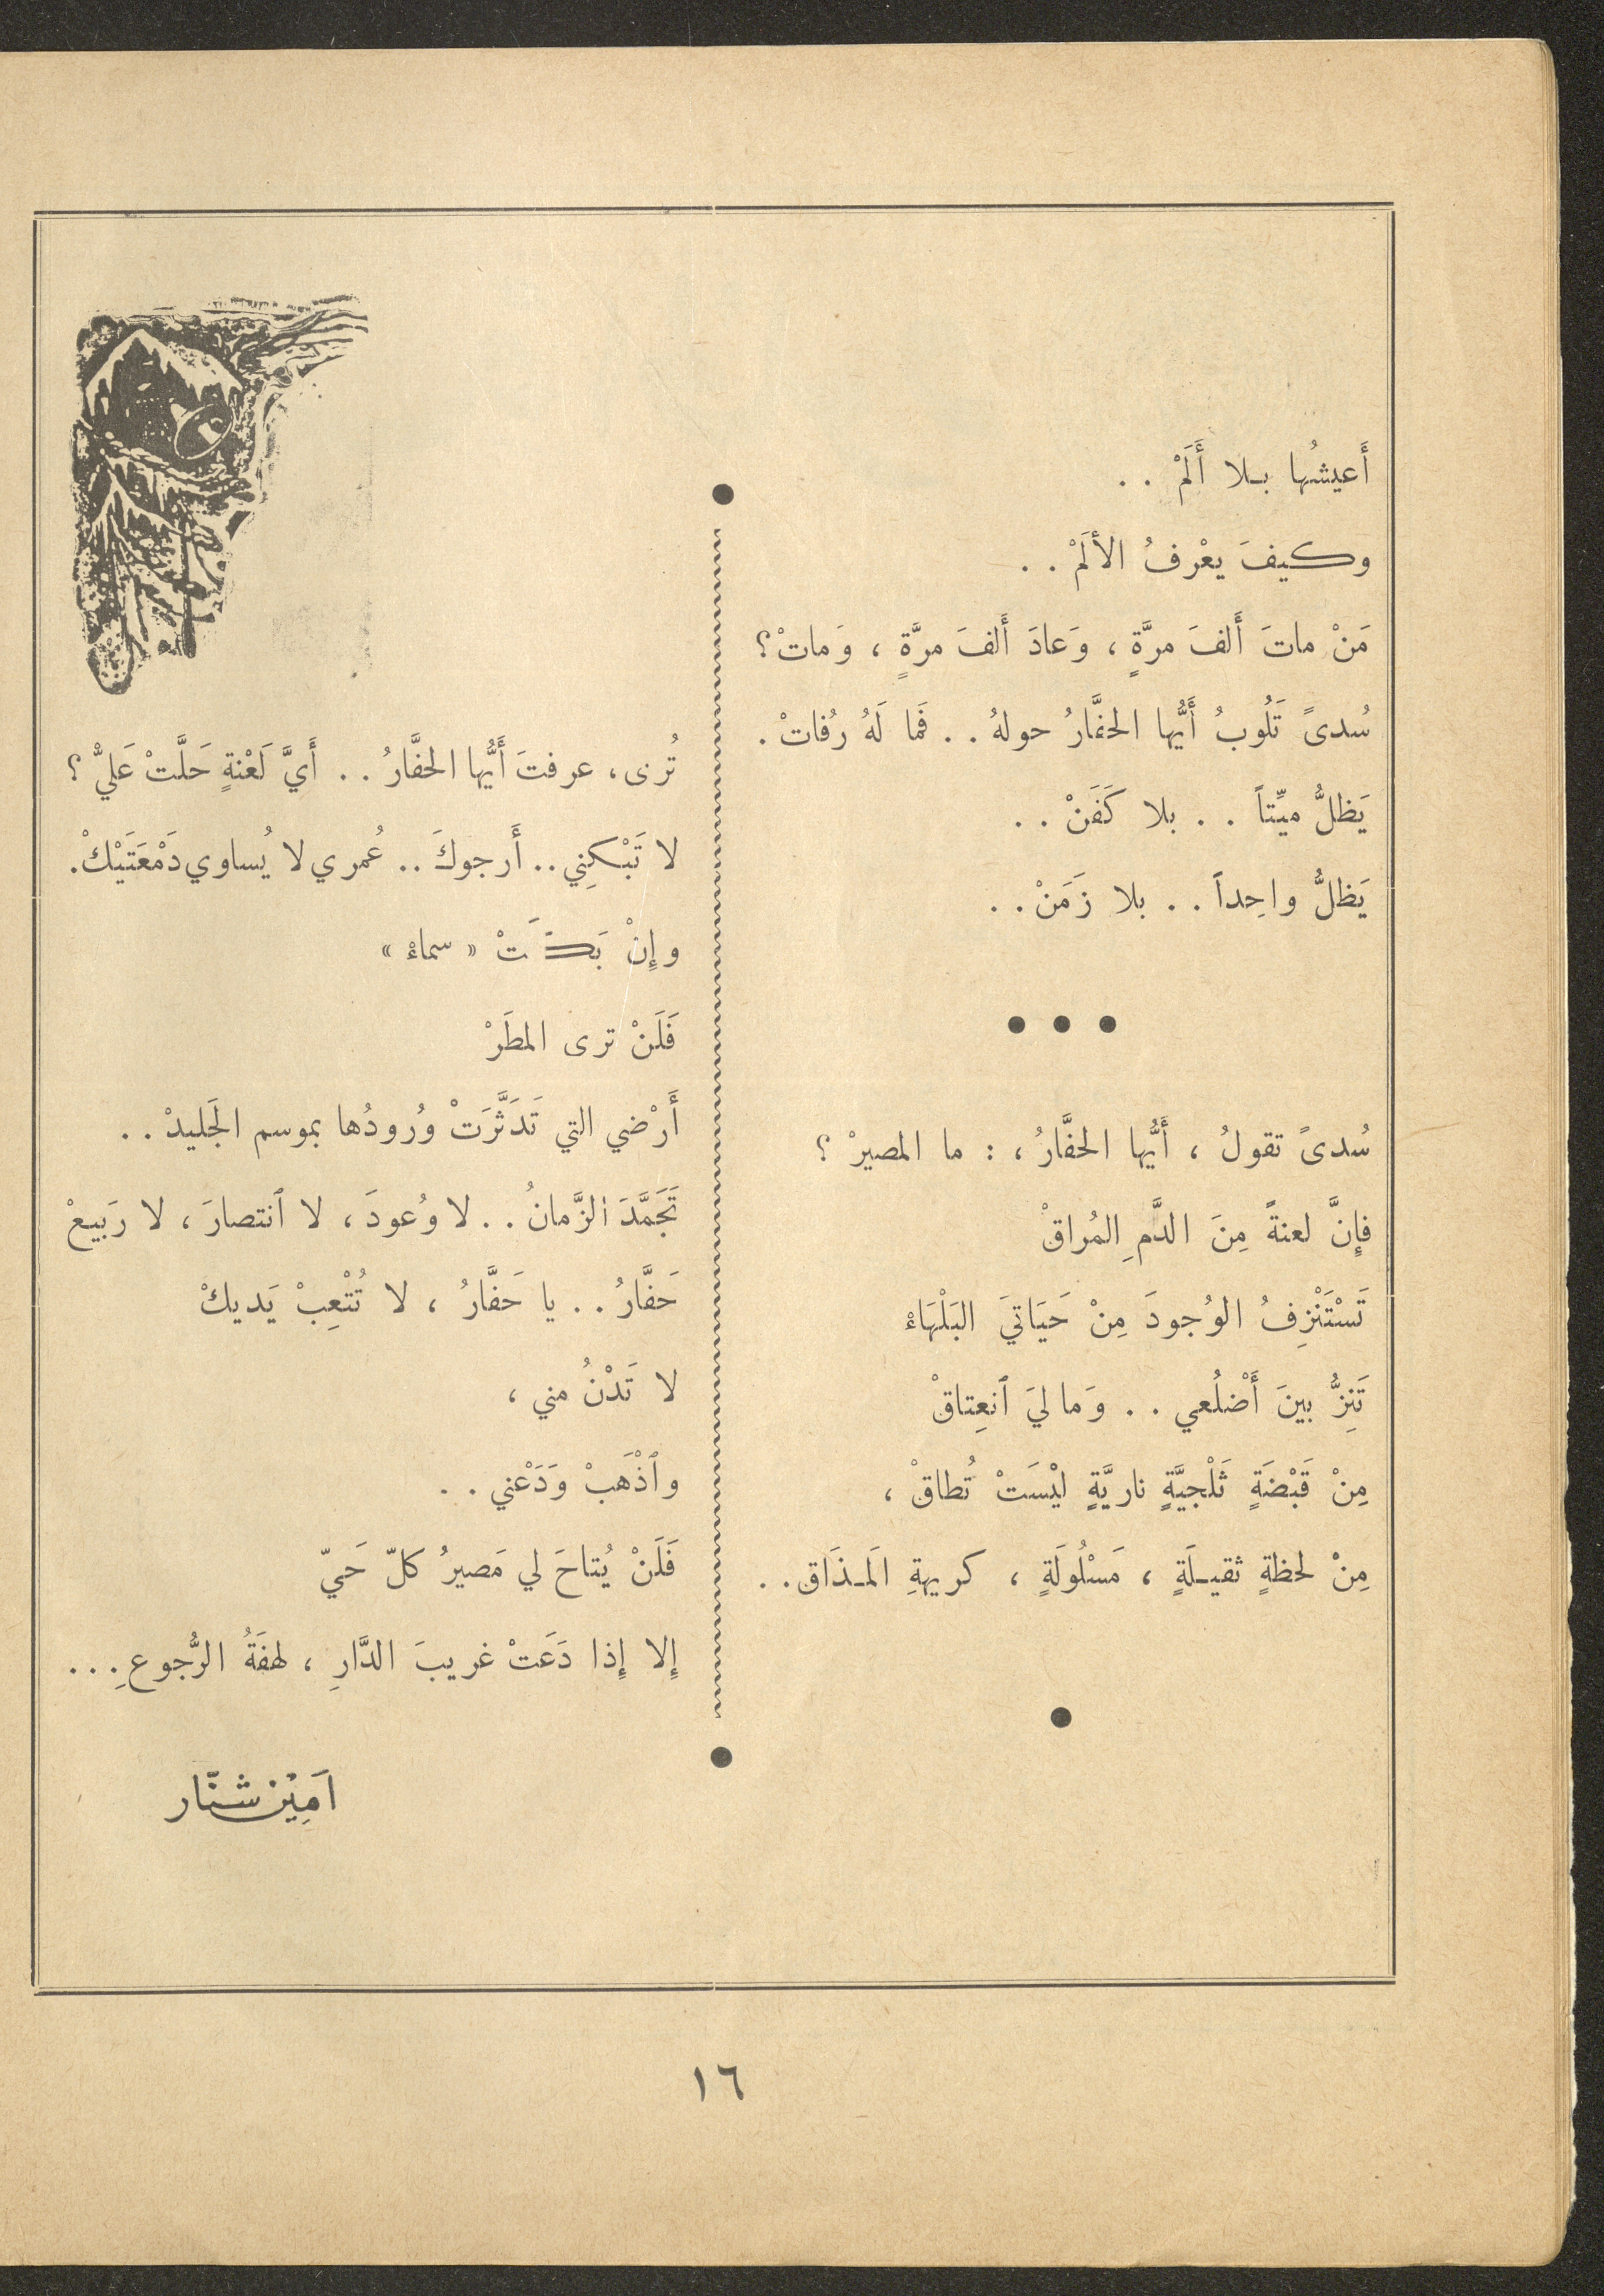 أَعيشُها بـلا أَلَمْ . .
وكيفَ يعْرفُ الألَمْ . .
مَنْ ماتَ أَلفَ مرَّةٍ ، وَعادَ أَلفَ مرَّةٍ ، وَماتْ؟
سُدىً تَلُوبُ أَيُّها الحفَّارُ حولهُ . . فَما لَهُ رُفاتْ .
يَظلُّ ميِّتاً . . بلا كَفَنْ . .
يَظلُّ واحِداً . . بلا زَمَنْ . .
● ● ●
سُدىً تقولُ ، أَيُّها الحفَّارُ ، : ما المصيرْ ؟
فإنَّ لعنةً مِنَ الدَّمِ المُراقْ
تَسْتَنْزِفُ الوُجودَ مِنْ حَيَاتيَ البَلْهَاءْ
تَنِزُّ بينَ أَضْلُعي . . وَما ليَ ٱنعِتاقْ
مِنْ قَبْضَةٍ ثَلْجيَّةٍ ناريَّةٍ ليْسَتْ تُطاقْ ،
مِنْ لحظةٍ ثقيـلَةٍ ، مَسْلُولَةٍ ، كريهةِ المَـذَاق . .
●
تُرى ، عرفتَ أَيُّها الحفَّارُ . . أَيَّ لَعْنةٍ حَلَّتْ عَليّْ ؟
لا تَبْكِني . . أَرجوكَ . . عُمري لا يُساوي دَمْعَتَيْكْ .
وإِنْ بَكَتْ « سماءْ »
فَلَنْ ترى المطَرْ
أَرْضي التي تَدَثَّرَتْ وُرودُها بموسم الجَليدْ . .
تَجَمَّدَ الزَّمانُ . . لا وُعودَ ، لا ٱنتصارَ ، لا رَبيعْ
حَفَّارُ . . يا حَفَّارُ ، لا تُتْعِبْ يَديكْ
لا تَدْنُ مني ،
وٱذْهَبْ وَدَعْني . .
فَلَنْ يُتاحَ لي مَصيرُ كلّ حَيّ
إلا إِذا دَعَتْ غريبَ الدَّارِ ، لهفَةُ الرُّجوعِ . . .
اَمِيْن شنّار
١٦